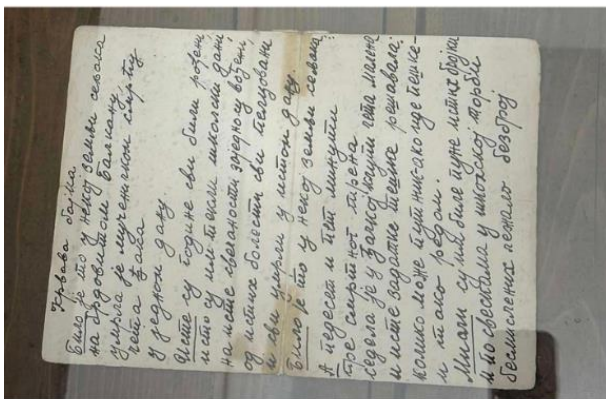 Крвава бајка
Било је то у некој земљи сељака
на брдовитом Балкану,
умрла је мученичком смрћу
чета ђака
у једном дану
Исте су године сви били рођени
исто су им текли школски дани
на исте свечаности заједно вођени,
од истих болести сви пелцовани
и сви умрли у истом дану.
Било је то у некој земљи сељака
А педесет и пет минута
пре смртног тирена
седела је у ђачкој клупи чета малена
и исте задатке тешке решавала:
колико може путник ако иде пешке-
и тако редом.
Мисли су им биле пуне истих бројка
и по свескама у школској торби
бесмислених лежало безброј